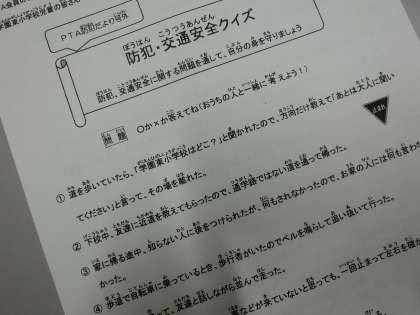 学園東小学校児童の皆さん
PTA防犯だより号外
防犯・交通安全クイズ
防犯、交通安全に関する問題を通して、自分の身を守りましょう
問題 ○か×か答えてね（おうちの人と一緒に考えよう！）
① 道を歩いていたら、「学園東小学校はどこ？」と聞かれたので、方向だけ教えて「あとは大人に聞い
てください」と言って、その場を離れた。
② 下校中、友達に近道を教えてもらったので、通学路ではない道を通って帰った。
③ 家に帰る途中、知らない人に後をつけられたが、何もされなかったので、お家の人には何も言わ
かった。
④ 歩道で自転車に乗っているとき、歩行者がいたのでベルを鳴らして追い抜いて行った。
って、友達と話しながら並んで走った。
車などが来ていないと思っても、一回止まって左右を確
止まれ